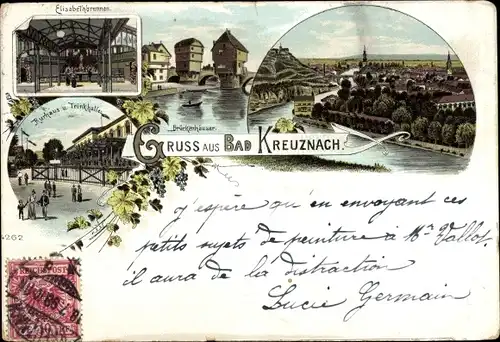 Elisabethbrunnen.
Kurhaus u. Trinkhalle
Brückenhäuser
GRUSS AUS BAD KREUZNACH.
J'espère qu'en envoyant ces
petits sujets de peinture à Mr Vallot
il aura de la distraction
Lucie Germain
4262
REICHSPOST